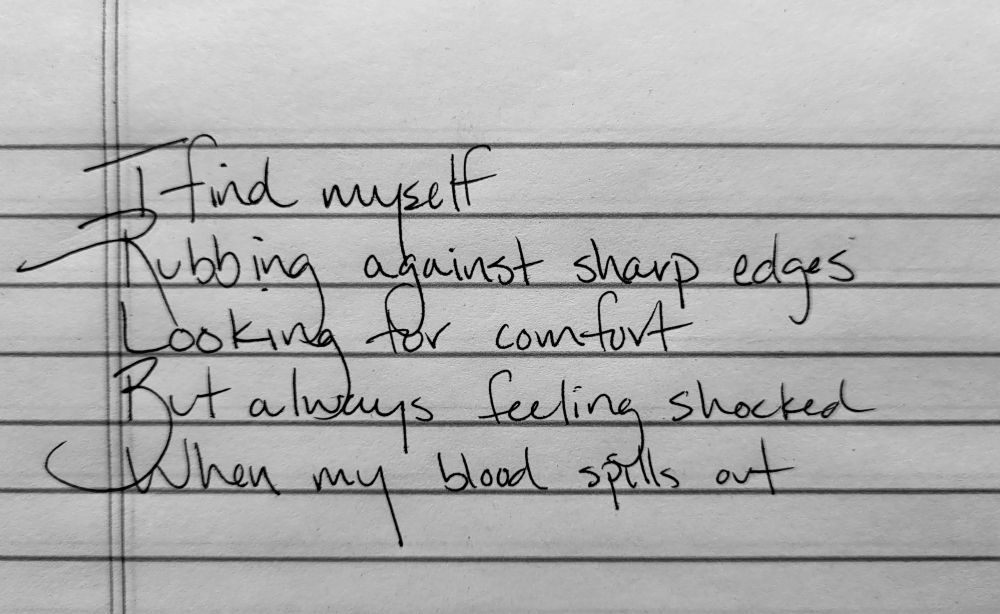 I find myself
Rubbing against sharp edges
Looking for comfort
But always feeling shocked
When my blood spills out